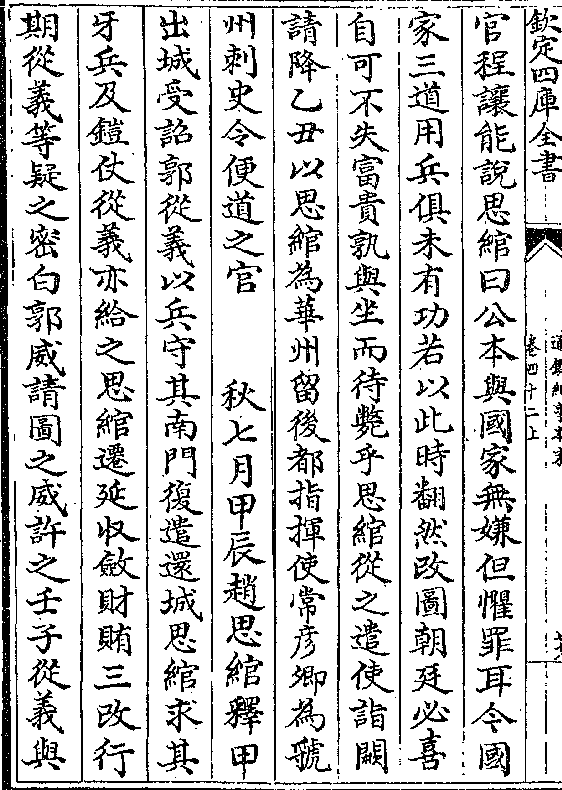 欽定四庫全書
通鑑紀事本末
卷四十二上
官程讓能說思綰曰公本與國家無嫌但懼罪耳今國
家三道用兵俱未有功若以此時翻然改圖朝廷必喜
自可不失富貴孰與坐而待斃乎思綰從之遣使詣闕
請降乙丑以思綰為華州留後都指揮使常彦卿為虢
州刺史令便道之官　　秋七月甲辰趙思綰釋甲
出城受詔郭從義以兵守其南門復遣還城思綰求其
牙兵及鎧仗從義亦給之思綰遷延收斂財賄三改行
期從義等疑之密白郭威請圖之威許之壬子從義與